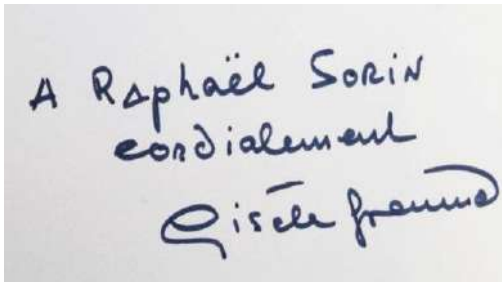 A Raphaël SORIN
cordialement
Gisèle Freund